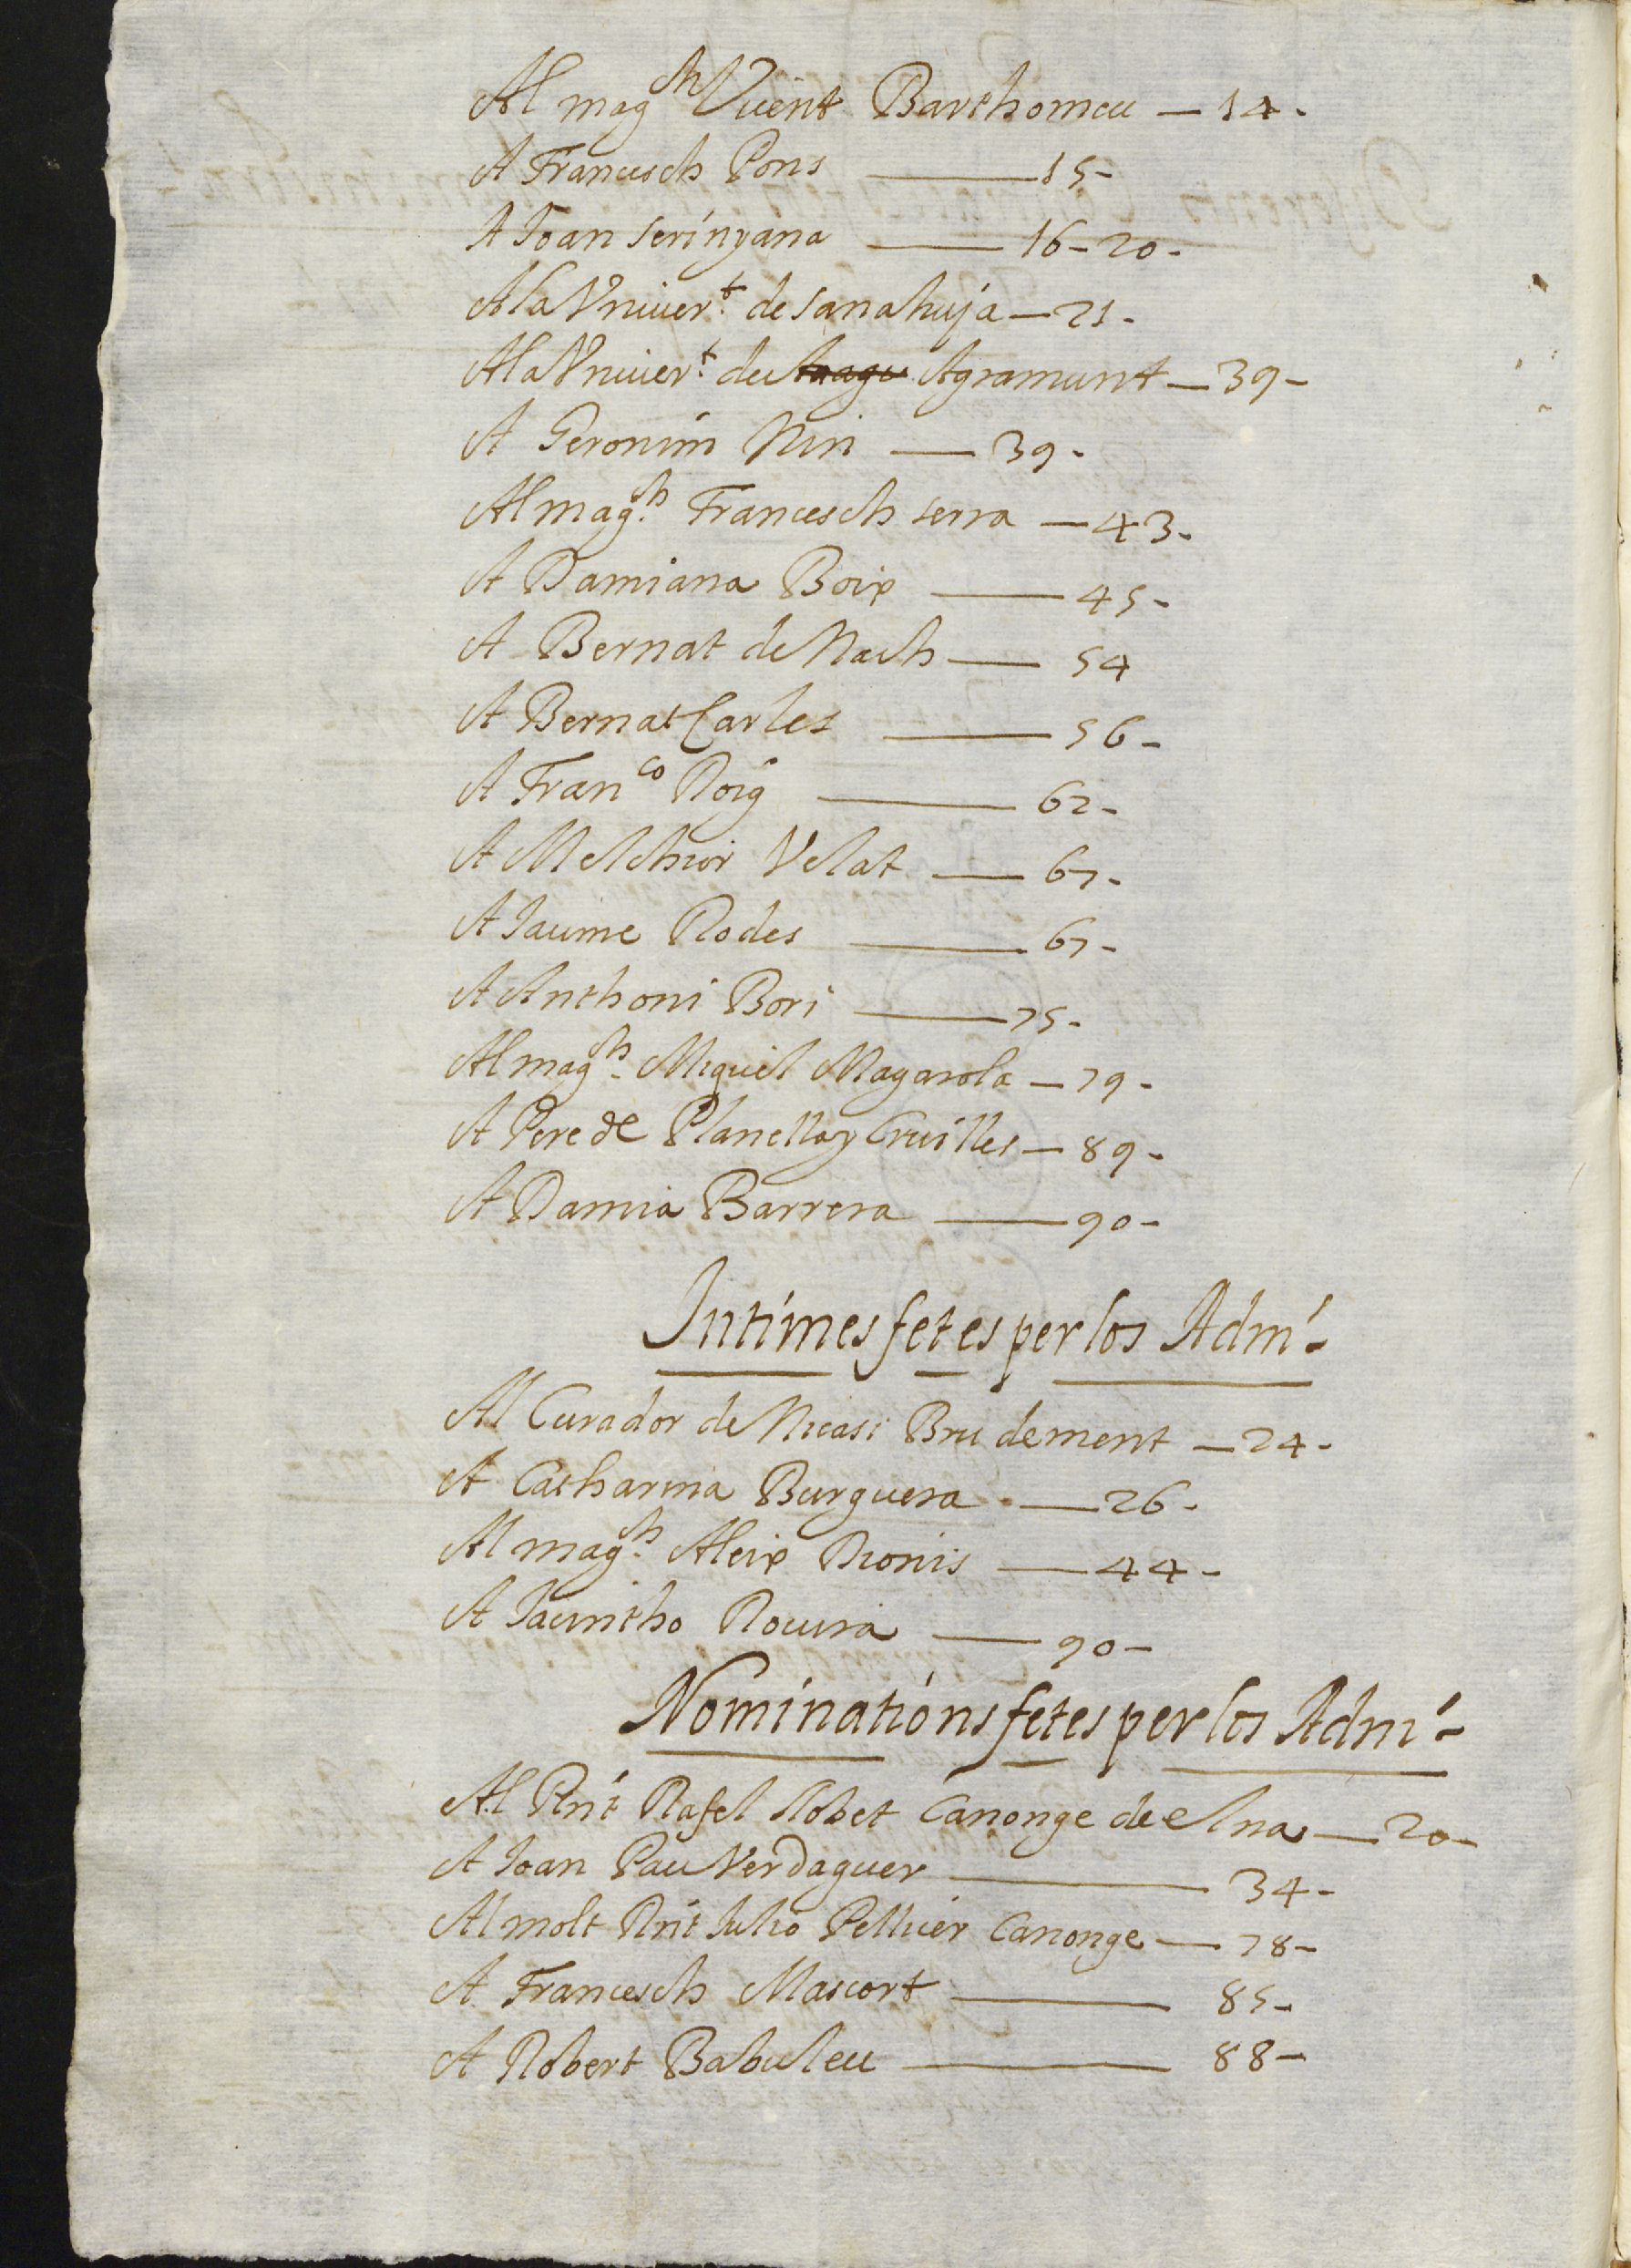 Al magch Vicent Barthomeu — 14 -
A Francesch Pons — 15 -
A Joan serinyana — 16 - 20 -
A la Vniuert de sanahuja — 21 -
A la Vniuert de Agramunt — 39 -
A Geronim Nin — 39 -
Al magch Francesch serra — 43 -
A Damiana Boix — 45 -
A Bernat de Nach — 54
A Bernat Carles — 56 -
A Franco Roig — 62 -
A Melchior Velat — 67 -
A Jaume Rodes — 67 -
A Anthoni Bori — 75 -
Al magch Miquel Magarola — 79 -
A Pere de Planella y Cruilles — 89 -
A Damia Barrera — 90 -
Intimes fetes per los Adm -
Al Curador de Nicasi Bru dement — 24 -
A Catharina Burguera — 26 -
Al magch Aleix Dionis — 44 -
A Jacintho Roura — 90 -
Nominations fetes per los Adm -
Al Rnt Rafel llobet Canonge de elna — 20 -
A Joan Pau Verdaguer — 34 -
Al molt Rnt Julio Pellicer Canonge — 78 -
A Francesch Mascort — 85 -
A Robert Babuleu — 88 -